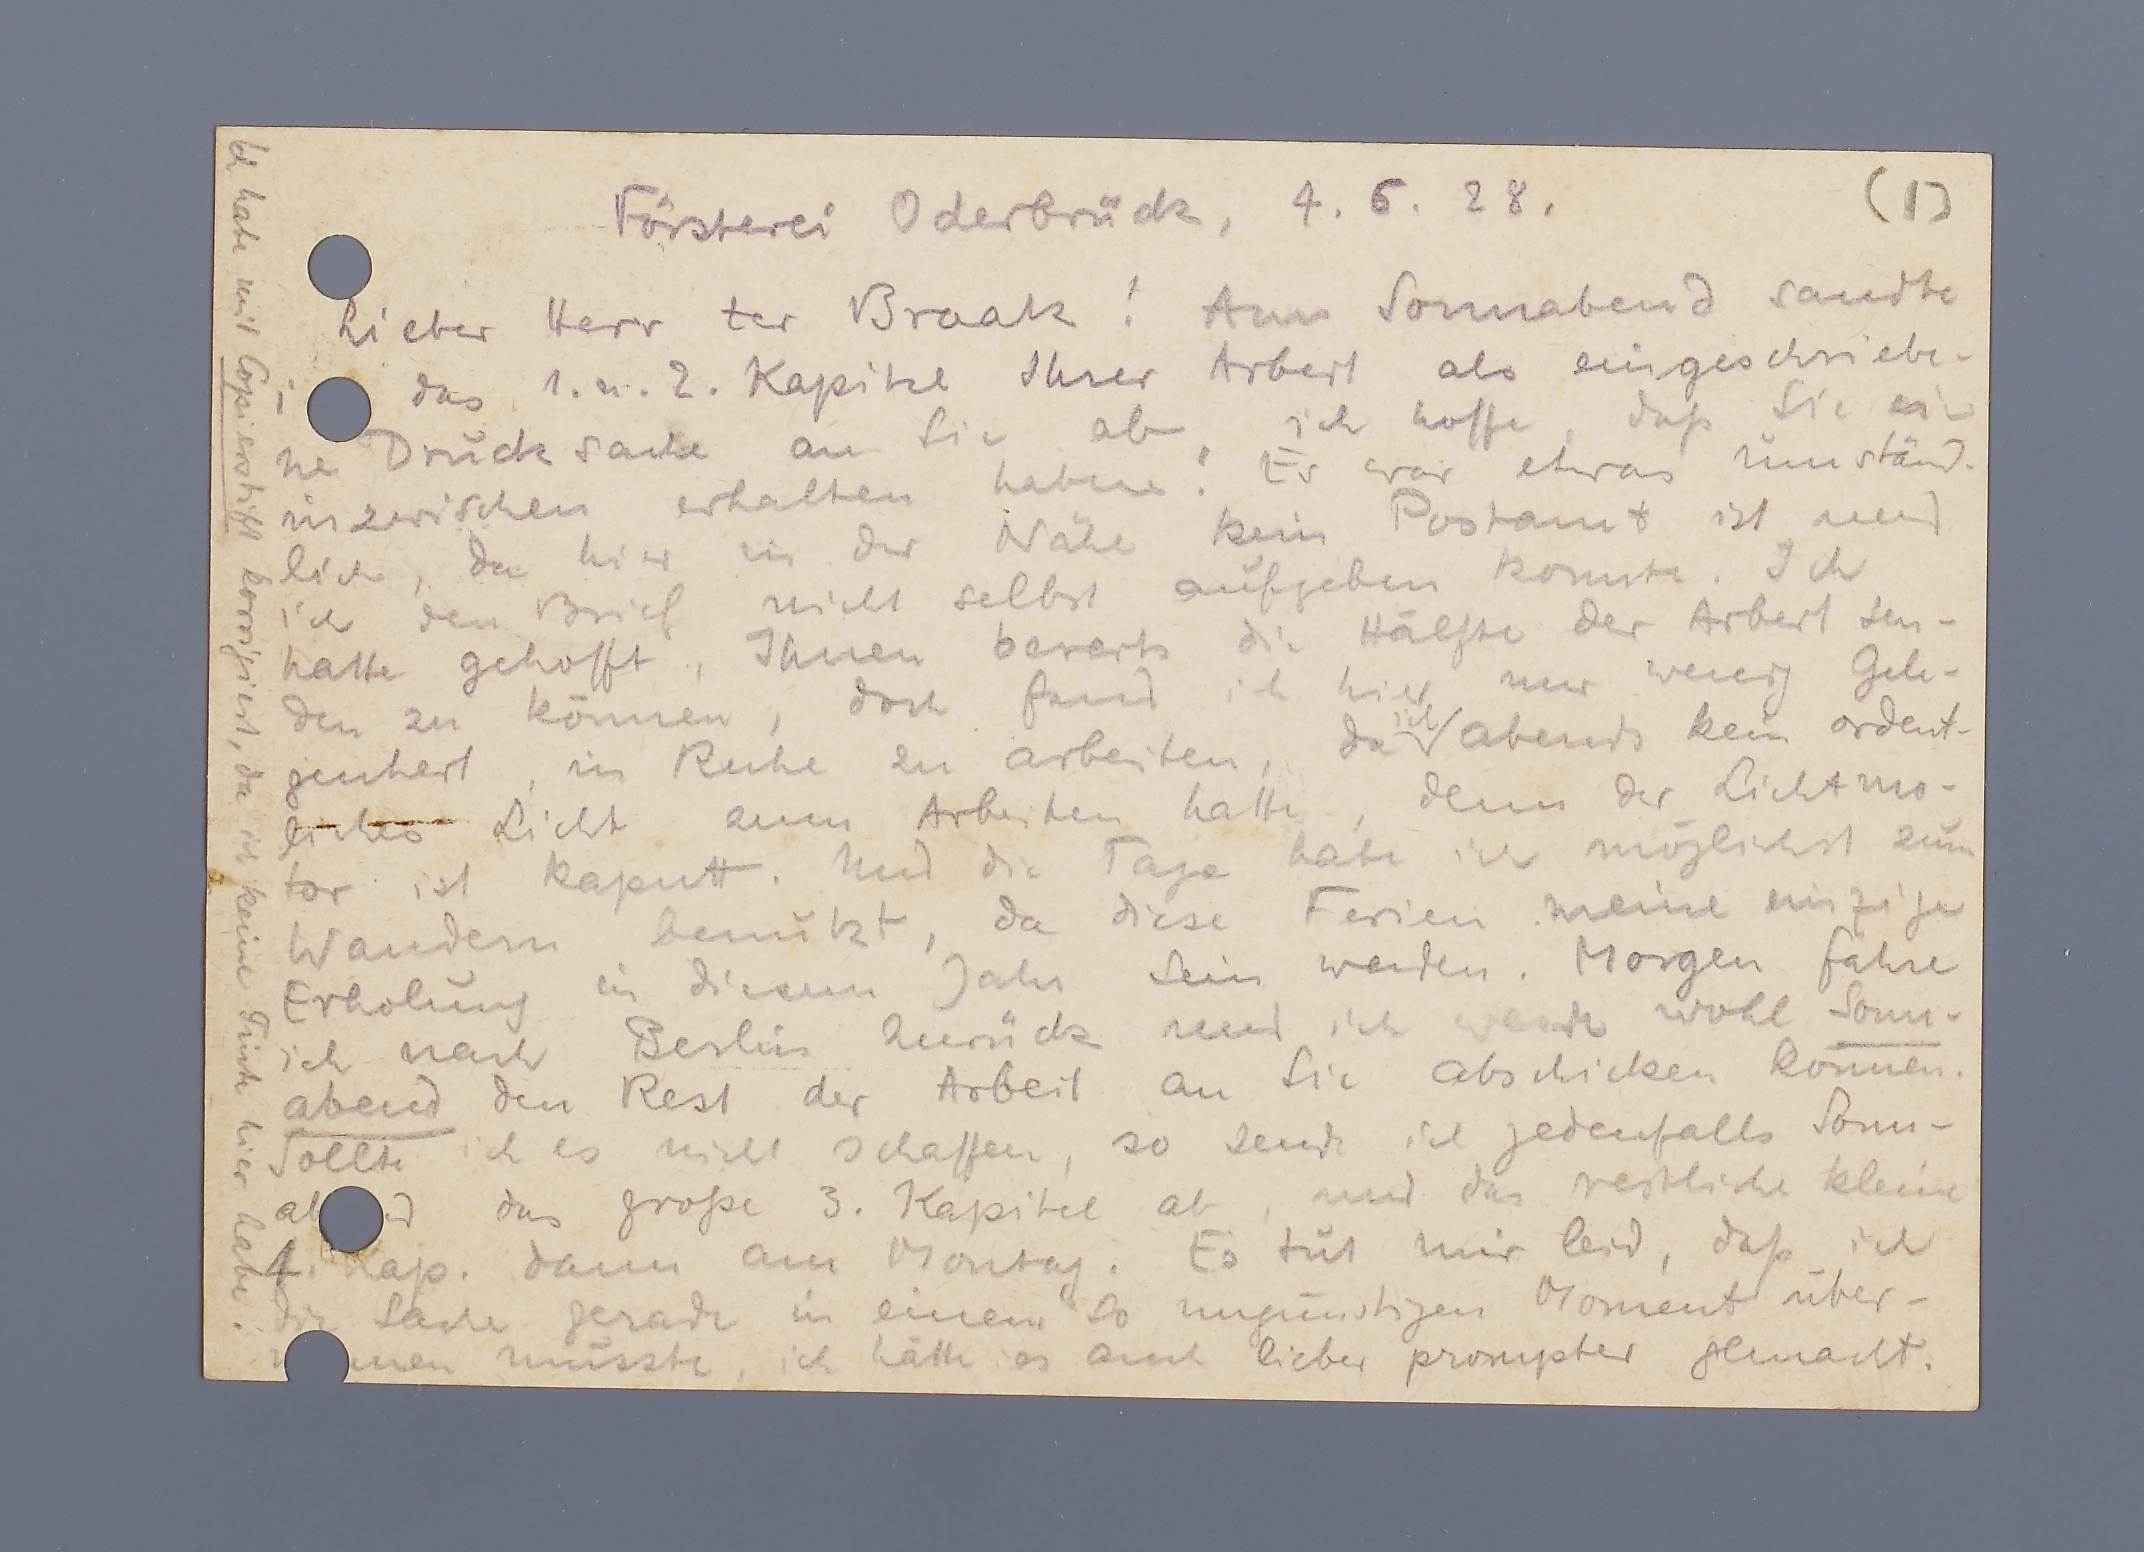 Försterei Oderbrück, 4. 6. 28.
(1)
Lieber Herr ter Braak! Am Sonnabend sandte
i das 1. u. 2. Kapitel Ihrer Arbeit als eingeschriebe-
ne Drucksache an Sie ab, ich hoffe, daß Sie sie
inzwischen erhalten haben! Es war etwas umständ-
lich, da hier in der Nähe kein Postamt ist und
ich den Brief nicht selbst aufgeben konnte. Ich
hatte gehofft, Ihnen bereits die Hälfte der Arbeit sen-
den zu können, doch fand ich hier nur wenig Gele-
genheit, in Ruhe zu arbeiten, da ich abends kein ordent-
liches Licht zum Arbeiten hatte, denn der Lichtmo-
tor ist kaputt. Und die Tage habe ich möglichst zum
Wandern benutzt, da diese Ferien meine einzige
Erholung in diesem Jahr sein werden. Morgen fahre
ich nach Berlin zurück und ich werde wohl Sonn-
abend den Rest der Arbeit an Sie abschicken können.
Sollte ich es nicht schaffen, so sende ich jedenfalls Sonn-
ab d das große 3. Kapitel ab, und das restliche kleine
4. Kap. dann am Montag. Es tut mir leid, daß ich
die Sache gerade in einem so ungünstigen Moment über-
n men müsste, ich hätte es auch lieber prompter gemacht.
Ich habe mit Copierstift korrigiert, da ich keine Tinte hier habe.